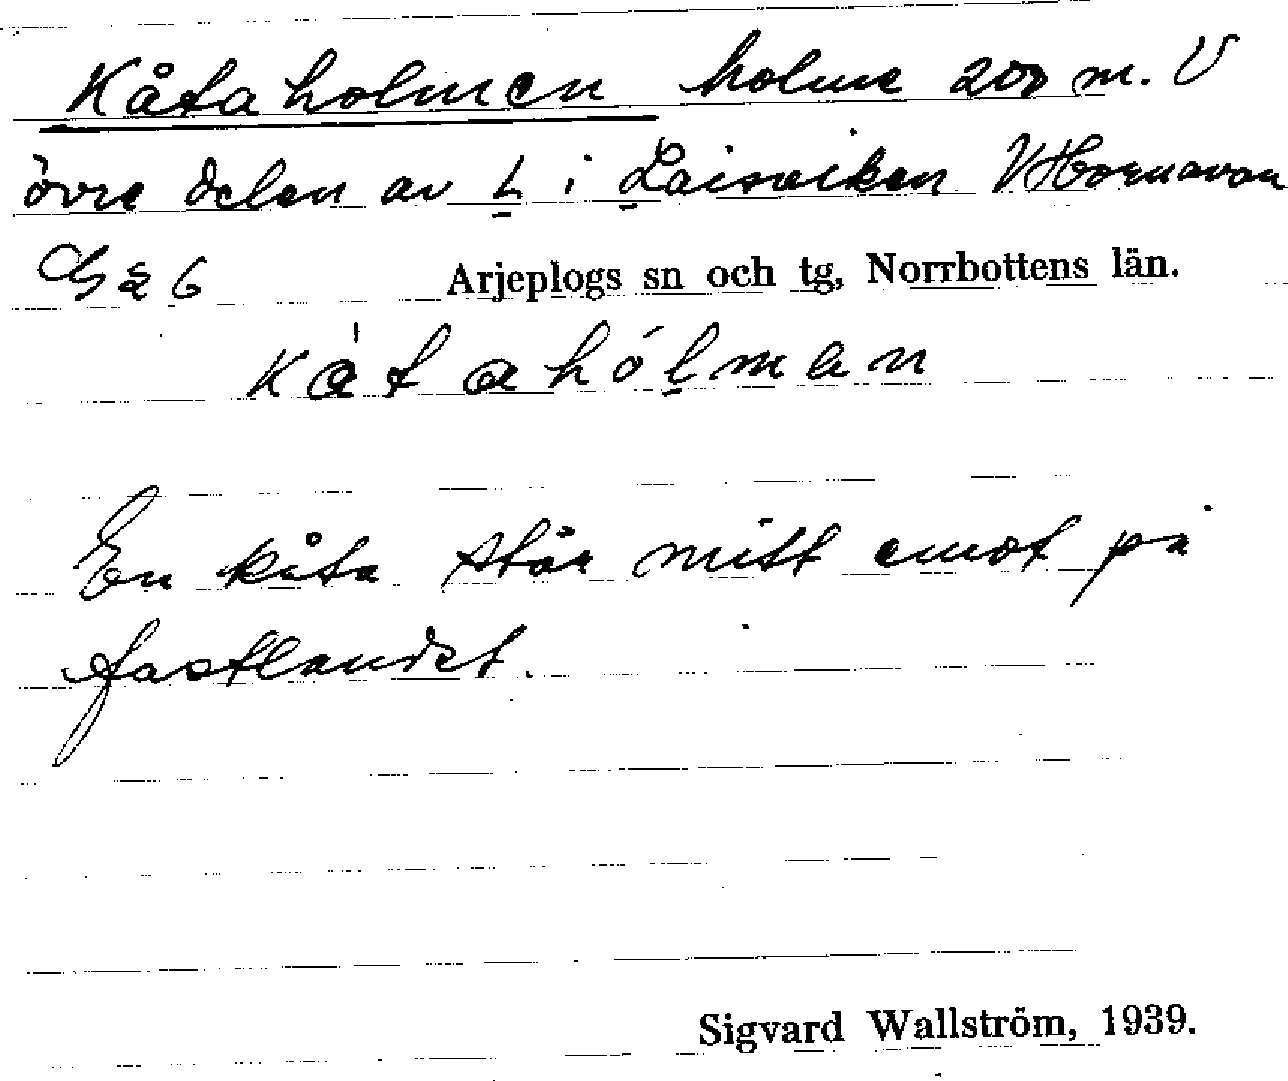 Kåtaholmen holme 200 m. V
övre delen av L i Laisviken V Hornavan
Gä 6 Arjeplogs sn och tg, Norrbottens län.
kå̀tahólman
En kåta står mitt emot på
fastlandet.
Sigvard Wallström, 1939.